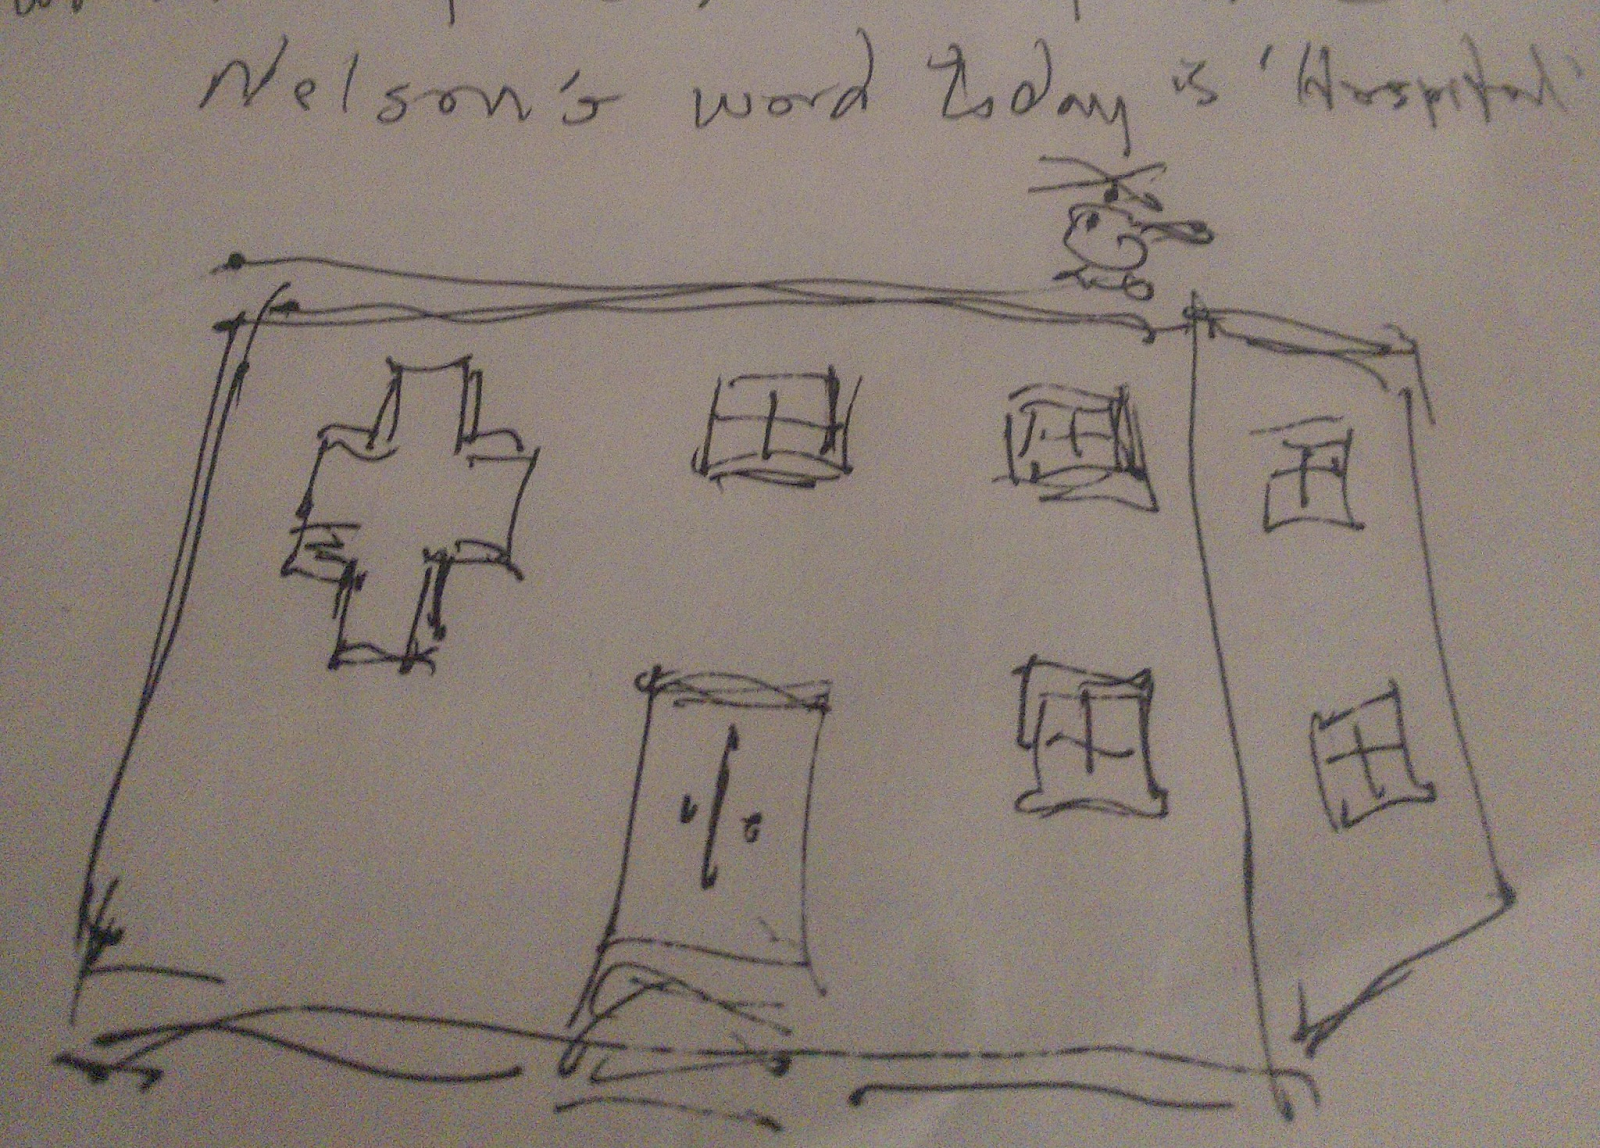 Nelson's word today is 'Hospital'